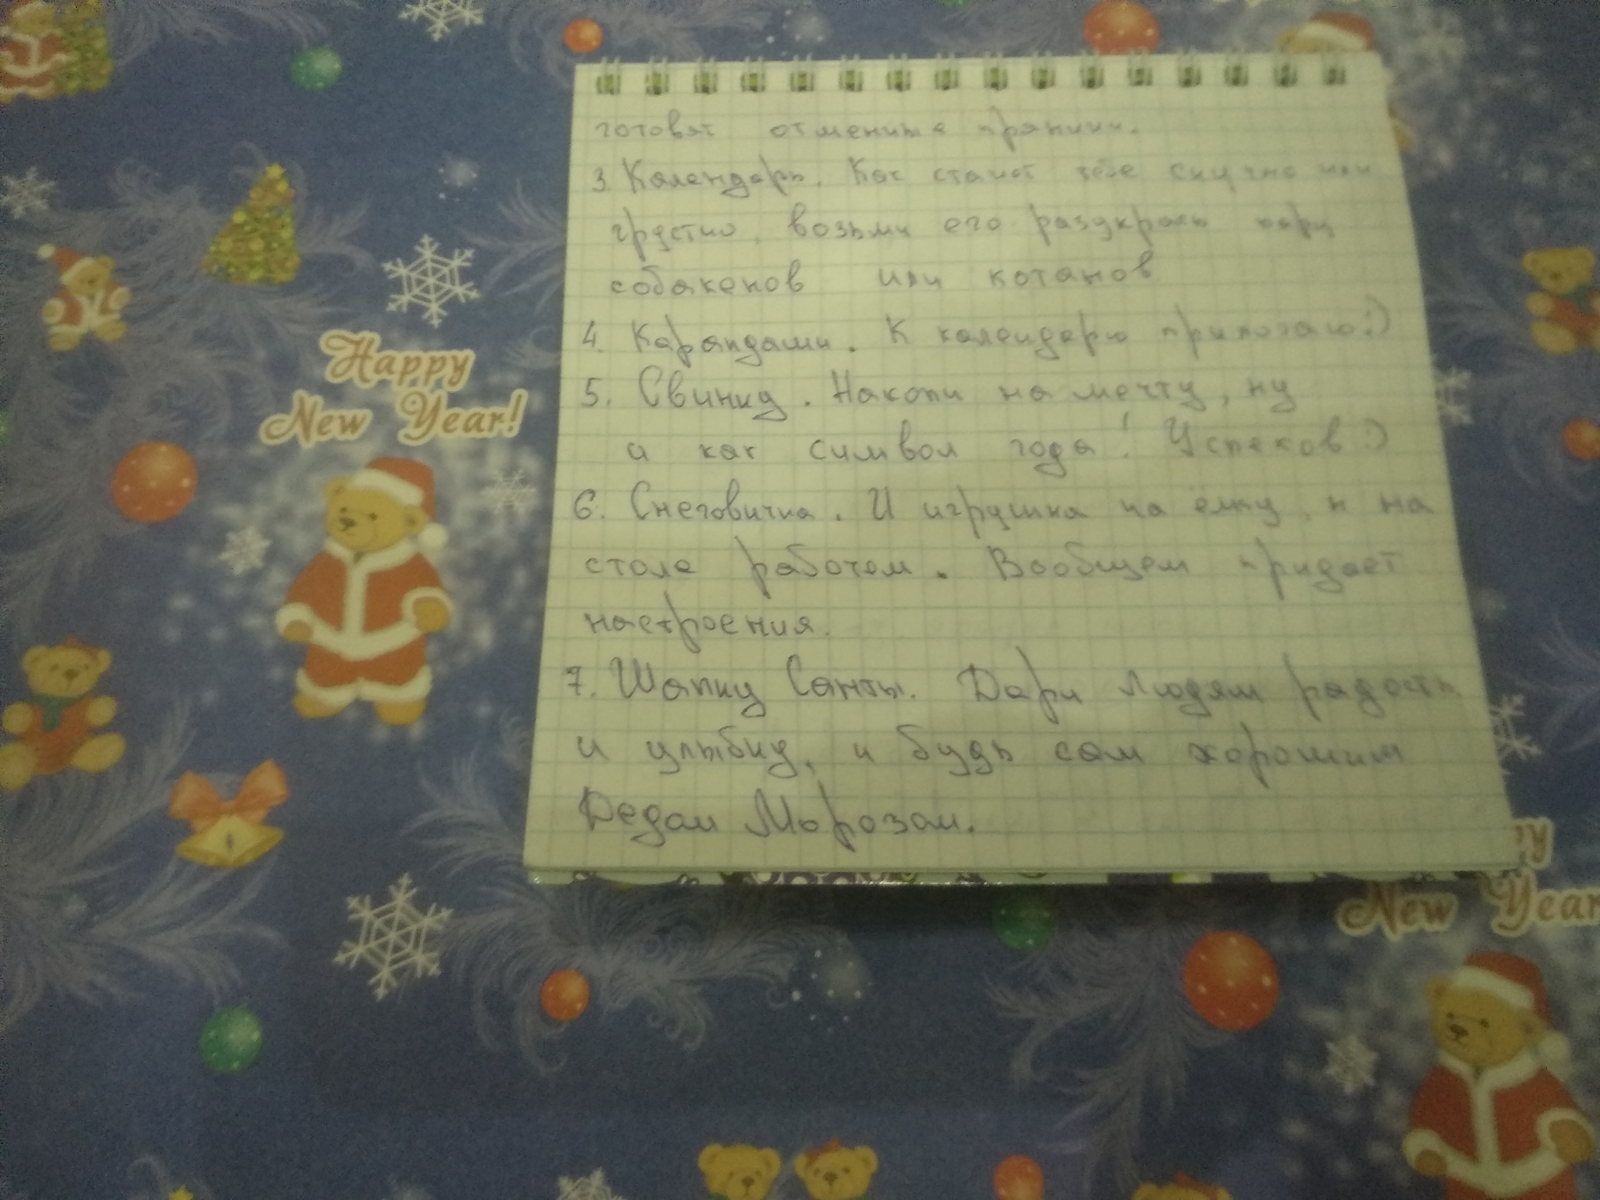 готовят отменные пряники.
3. Календарь. Как станет тебе скучно или
грустно, возьми его разукрась пару
собакенов или котанов
4. Карандаши. К календарю прилогаю:)
5. Свинку. Накопи на мечту, ну
а как символ года! Успехов:)
6. Снеговичка. И игрушка на ёлку, и на
столе рабочем. Вообщем придает
настроения.
7. Шапку Санты. Дари людям радость
и улыбку, и будь сам хорошим
Дедом Морозом.
Happy
New Year!
New Year